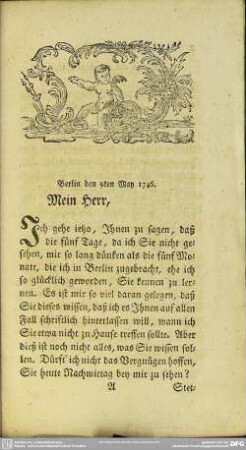 Berlin den 9ten May 1746.
Mein Herr,
Ich gehe ietzo, Ihnen zu sagen, daß
die fünf Tage, da ich Sie nicht ge-
sehen, mir so lang dünken als die fünf Mo-
nate, die ich in Berlin zugebracht, ehe ich
so glücklich geworden, Sie kennen zu ler-
nen. Es ist mir so viel daran gelegen, daß
Sie dieses wissen, daß ich es Ihnen auf allen
Fall schriftlich hinterlassen will, wann ich
Sie etwa nicht zu Hause treffen sollte. Aber
dieß ist noch nicht alles, was Sie wissen sol-
len. Dürft' ich nicht das Vergnügen hoffen,
Sie heute Nachmittag bey mir zu sehen?
A Stet-
DFG